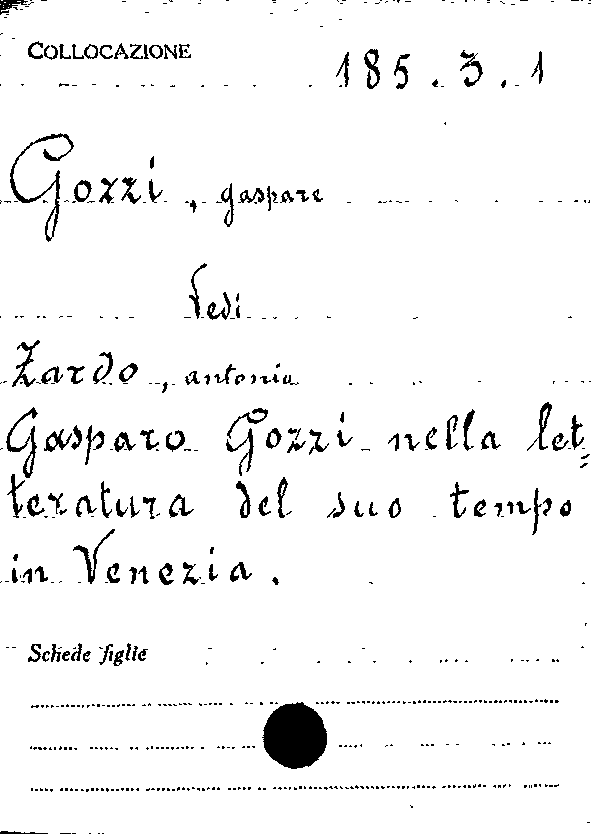 COLLOCAZIONE
185.3.1
Gozzi, gaspare
Vedi
Zardo, antonio
Gasparo Gozzi nella let=
teratura del suo tempo
in Venezia.
Schede figlie